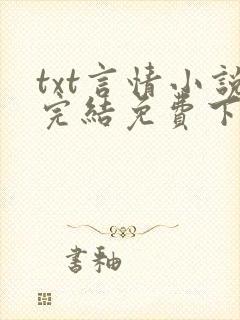 txt言情小說
完結免費下
書釉